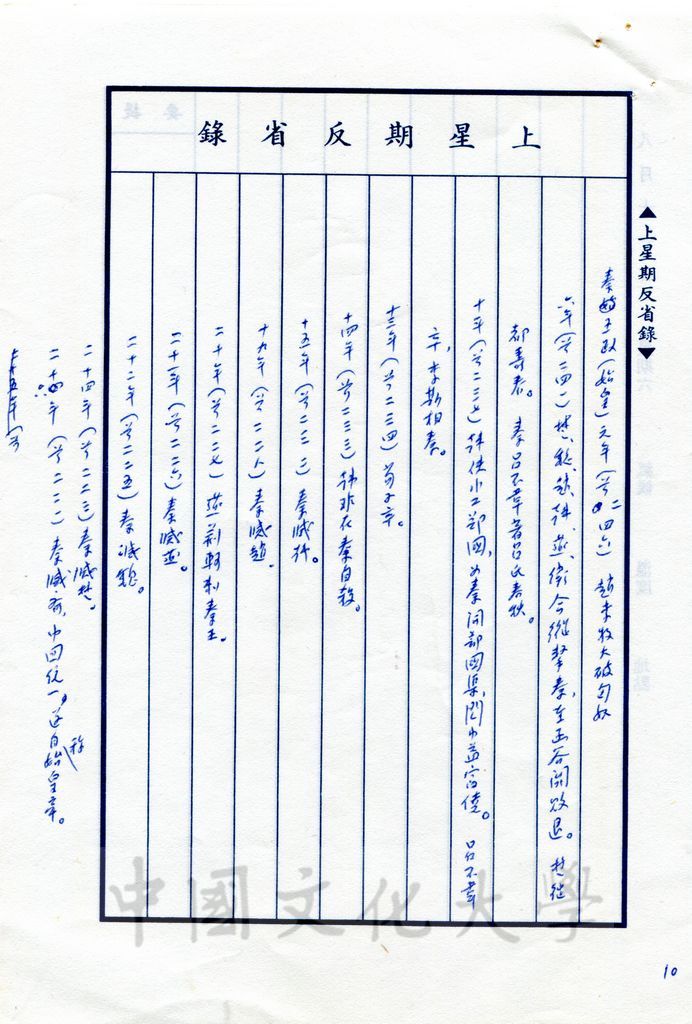 上星期反省錄
▲上星期反省錄▼
秦始王政(始皇)元年(前二四六)趙李牧大破匈奴
六年(前二四一)楚、趙、魏、韓、燕、衛合縱擊秦,至函谷關敗退。楚徙
都壽春。秦呂不韋著呂氏春秋。
十年(前二三七)韓使水工鄭國,為秦開鄭國渠,關中益富饒。呂不韋
卒,李斯相秦。
十三年(前二三四)荀子卒。
十四年(前二三三)韓非在秦自殺。
十五年(前二三一)秦滅韓。
十九年(前二二八)秦滅趙。
二十年(前二二七)燕荊軻刺秦王。
二十一年(前二二六)秦滅燕。
二十二年(前二二五)秦滅魏。
二十四年(前二二三)秦滅楚。
二十四年(前二二一)秦滅齊,中國統一。政自稱始皇帝。
二十五年(前
中國文化大學
10